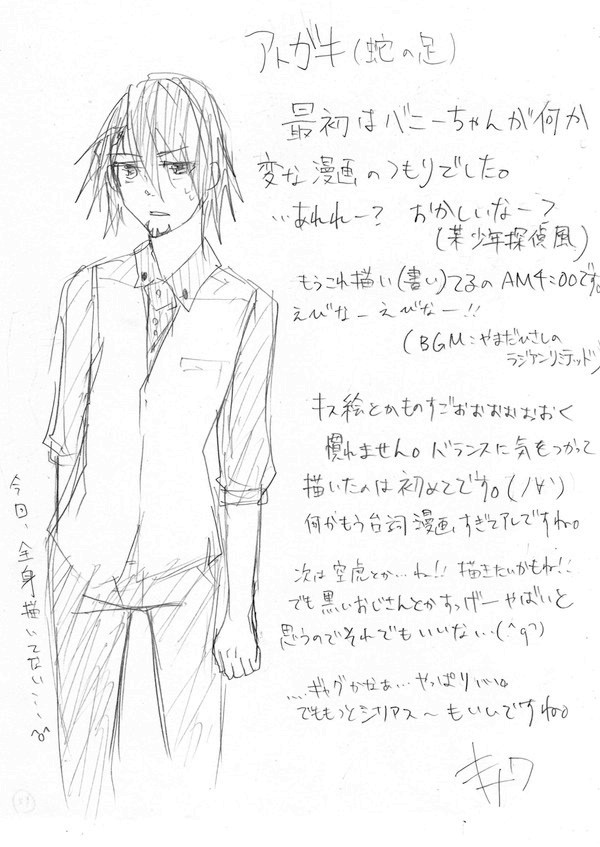 アトガキ(蛇の足)
最初はバニーちゃんが何か
変な漫画のつもりでした。
…あれれー? おかしいなー?
(某少年探偵風)
もうこれ描い(書い)てるのAM4:00です。
えびなー えびなー!!
(BGM:やまだひさしの
ラジアンリミテッド)
キス絵とかものすごおおおおおおく
慣れません。バランスに気をつかって
描いたのは初めてです。(ノ∀`)
何かもう台詞漫画すぎてアレですね。
次は空虎とか…ね!! 描きたいかもね!!
でも黒いおじさんとかすっげーやばいと
思うのでそれでもいいな…(^q^)
….ギャグかなぁ…やっぱり
でももっとシリアス〜もいいですね。
キナワ
今回、全身描いてない…